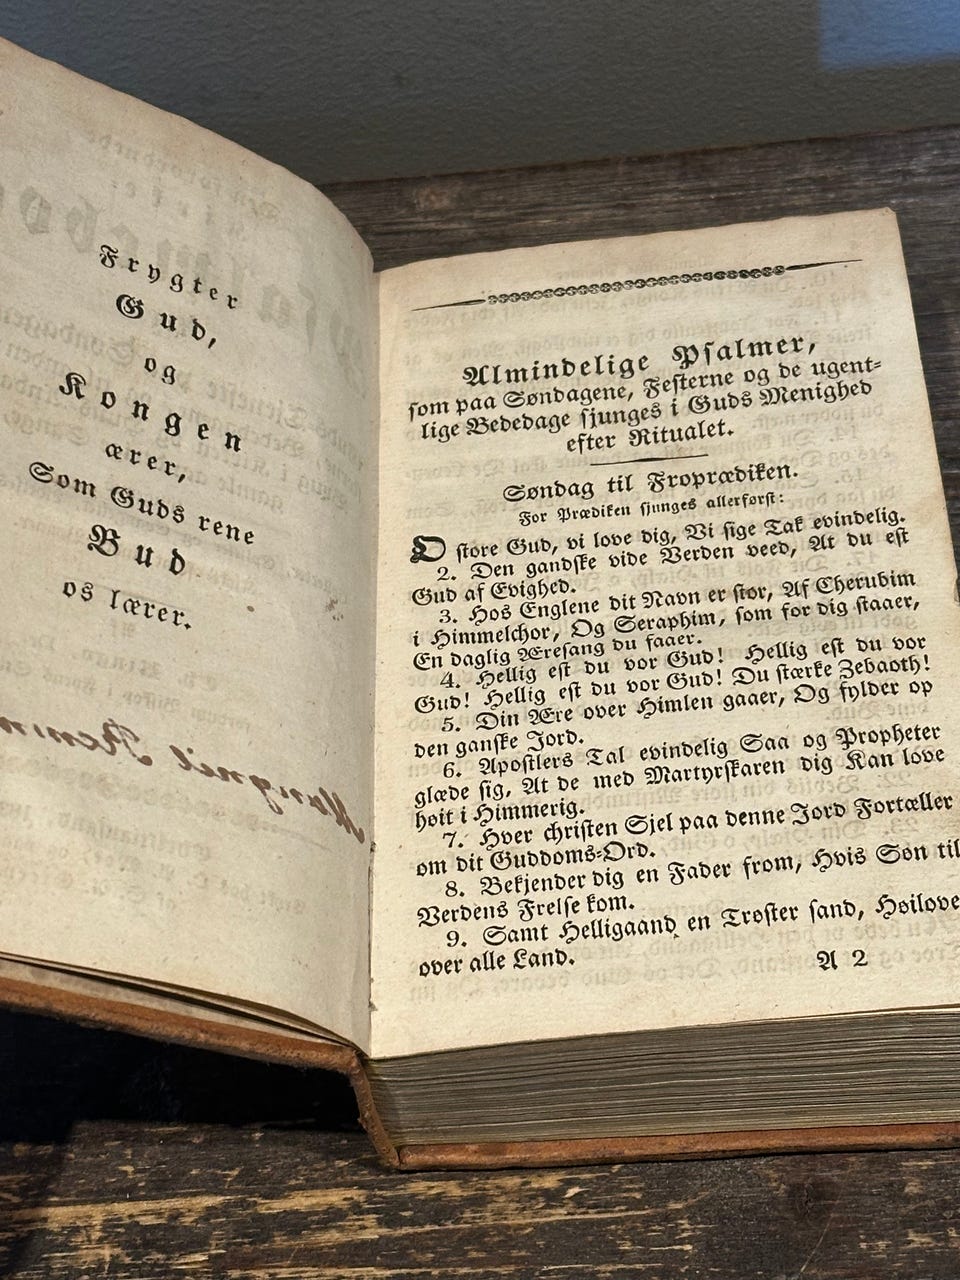 Frygter
Gud,
og
Kongen
ærer,
Som Guds rene
Bud
os lærer.
Almindelige Psalmer,
som paa Søndagene, Festerne og de ugent-
lige Bededage sjunges i Guds Menighed
efter Ritualet.
Søndag til Froprædiken.
For Prædiken sjunges allerførst:
O store Gud, vi love dig, Vi sige Tak evindelig.
2. Den gandske vide Verden veed, At du est
Gud af Evighed.
3. Hos Englene dit Navn er stor, Af Cherubim
i Himmelchor, Og Seraphim, som for dig staaer,
En daglig Æresang du faaer.
4. Hellig est du vor Gud! Hellig est du vor
Gud! Hellig est du vor Gud! Du stærke Zebaoth!
5. Din Ære over Himlen gaaer, Og fylder op
den ganske Jord.
6. Apostlers Tal evindelig Saa og Propheter
glæde sig, At de med Martyrskaren dig Kan love
høit i Himmerig.
7. Hver christen Sjel paa denne Jord Fortæller
om dit Guddoms-Ord.
8. Bekjender dig en Fader from, Hvis Søn til
Verdens Frelse kom.
9. Samt Helligaand en Trøster sand, Høilove
over alle Land.
A 2